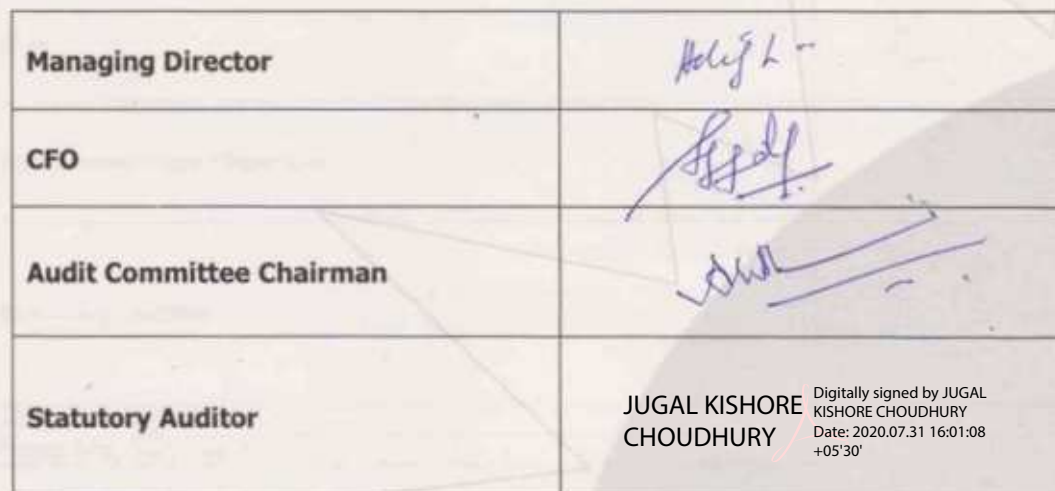 Managing Director
CFO
Audit Committee Chairman
Statutory Auditor
JUGAL KISHORE
CHOUDHURY
Digitally signed by JUGAL
KISHORE CHOUDHURY
Date: 2020.07.31 16:01:08
+05'30'